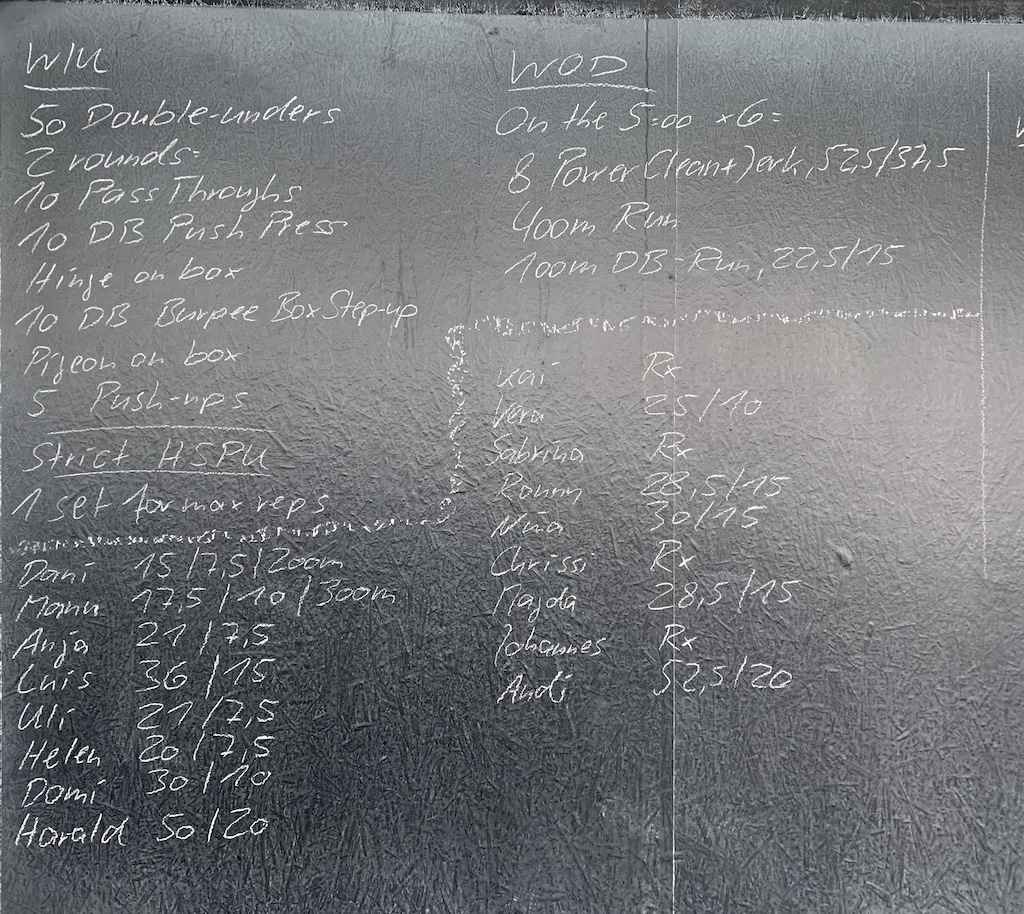 W/U
50 Double-unders
2 rounds:
10 Pass Throughs
10 DB Push Press
Hinge on box
10 DB Burpee Box Step-up
Pigeon on box
5 Push-ups
Strict HSPU
1 set for max reps
Dani 15/7,5/200m
Manu 17,5/10/300m
Anja 21/7,5
Luis 36/15
Uli 21/7,5
Helen 20/7,5
Domi 30/10
Harald 50/20
WOD
On the 5:00 x6:
8 Power Clean+Jerk, 52,5/37,5
400m Run
100m DB-Run, 22,5/15
Kai Rx
Vera 25/10
Sabrina Rx
Ronny 28,5/15
Nina 30/15
Chrissi Rx
Majda 28,5/15
Johannes Rx
Andi 52,5/20